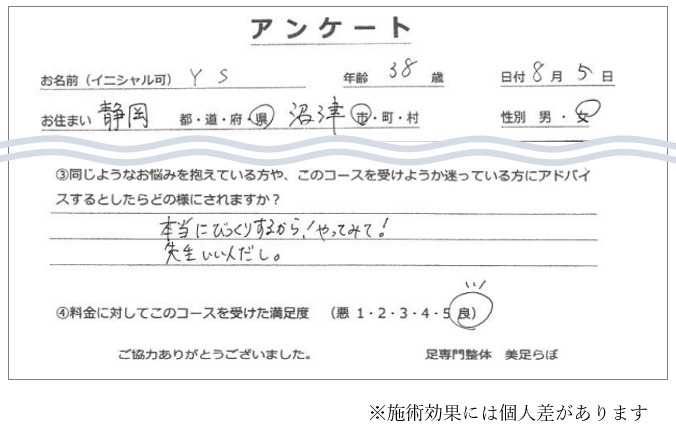 アンケート
お名前（イニシャル可） Y S 年齢 38 歳 日付 8 月 5 日
お住まい 静岡 都・道・府・県 沼津 市・町・村 性別 男・女
③同じようなお悩みを抱えている方や、このコースを受けようか迷っている方にアドバイ
スするとしたらどの様にされますか？
本当にびっくりするから！やってみて！
先生いい人だし。
④料金に対してこのコースを受けた満足度 （悪 1・2・3・4・5 良）
ご協力ありがとうございました。 足専門整体 美足らぼ
※施術効果には個人差があります